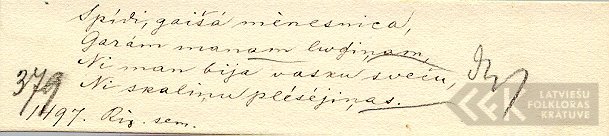 Spīdi, gaišā mēnesnīca,
Garām manam lodziņam,
Ni man bija vasku sveču,
Ni skaliņu plēsējiņas.
379
1497. Rig. sem.
LATVIEŠU
FOLKLORAS
KRĀTUVE